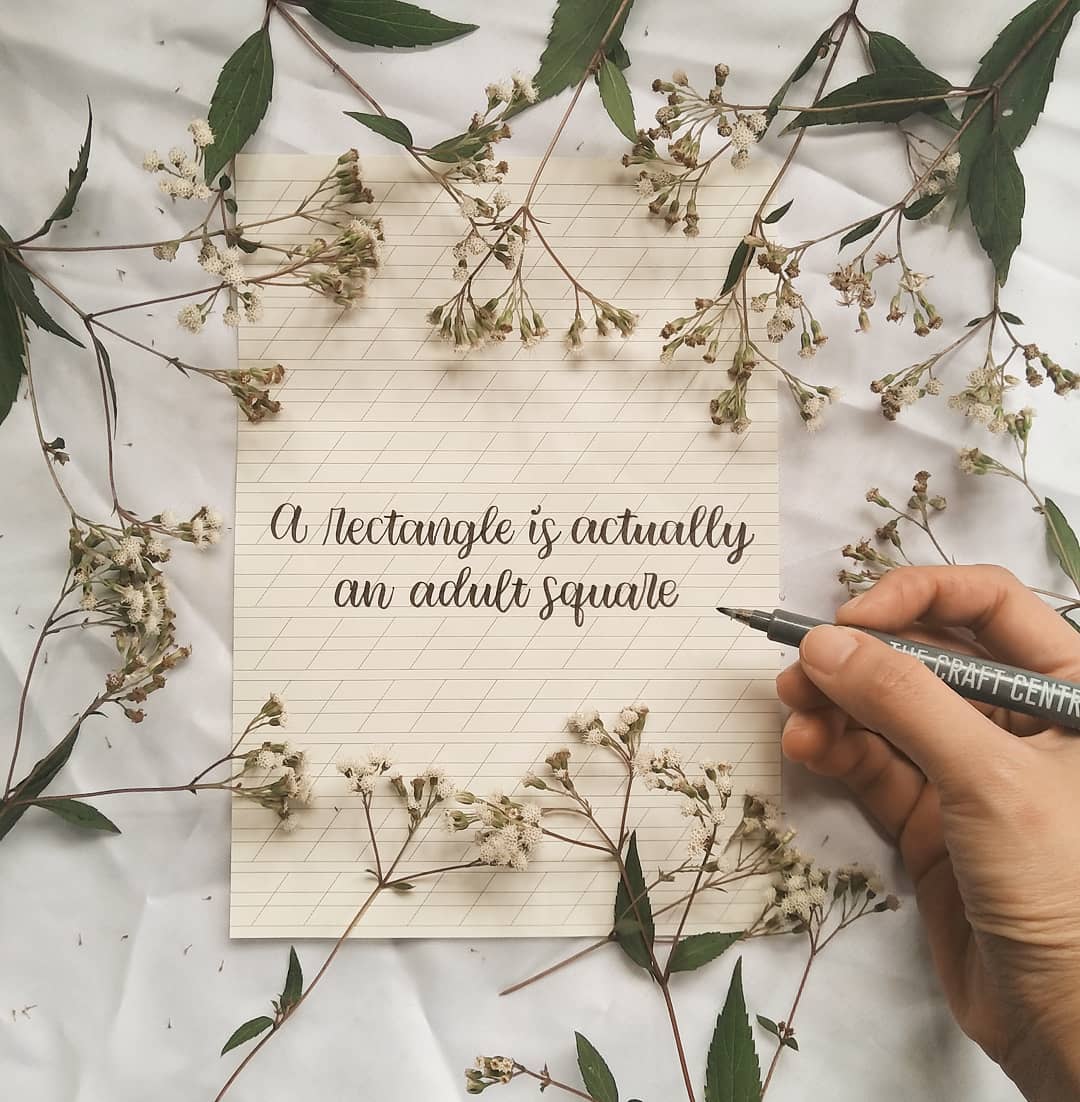 A rectangle is actually
an adult square
THE CRAFT CENTR